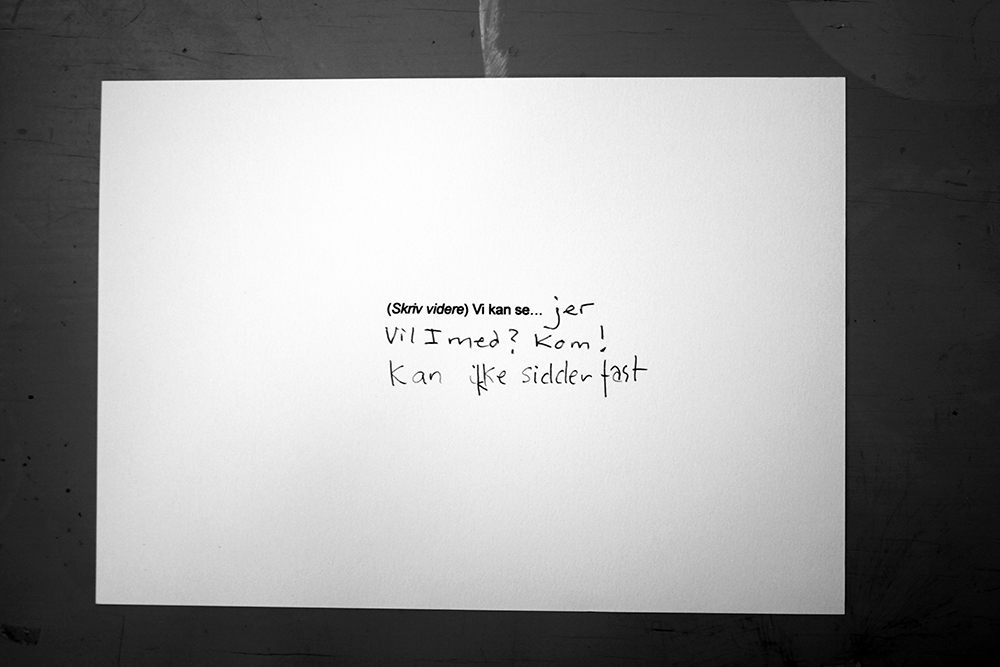 (Skriv videre) Vi kan se... jer
Vil I med? Kom!
Kan ikke sidder fast